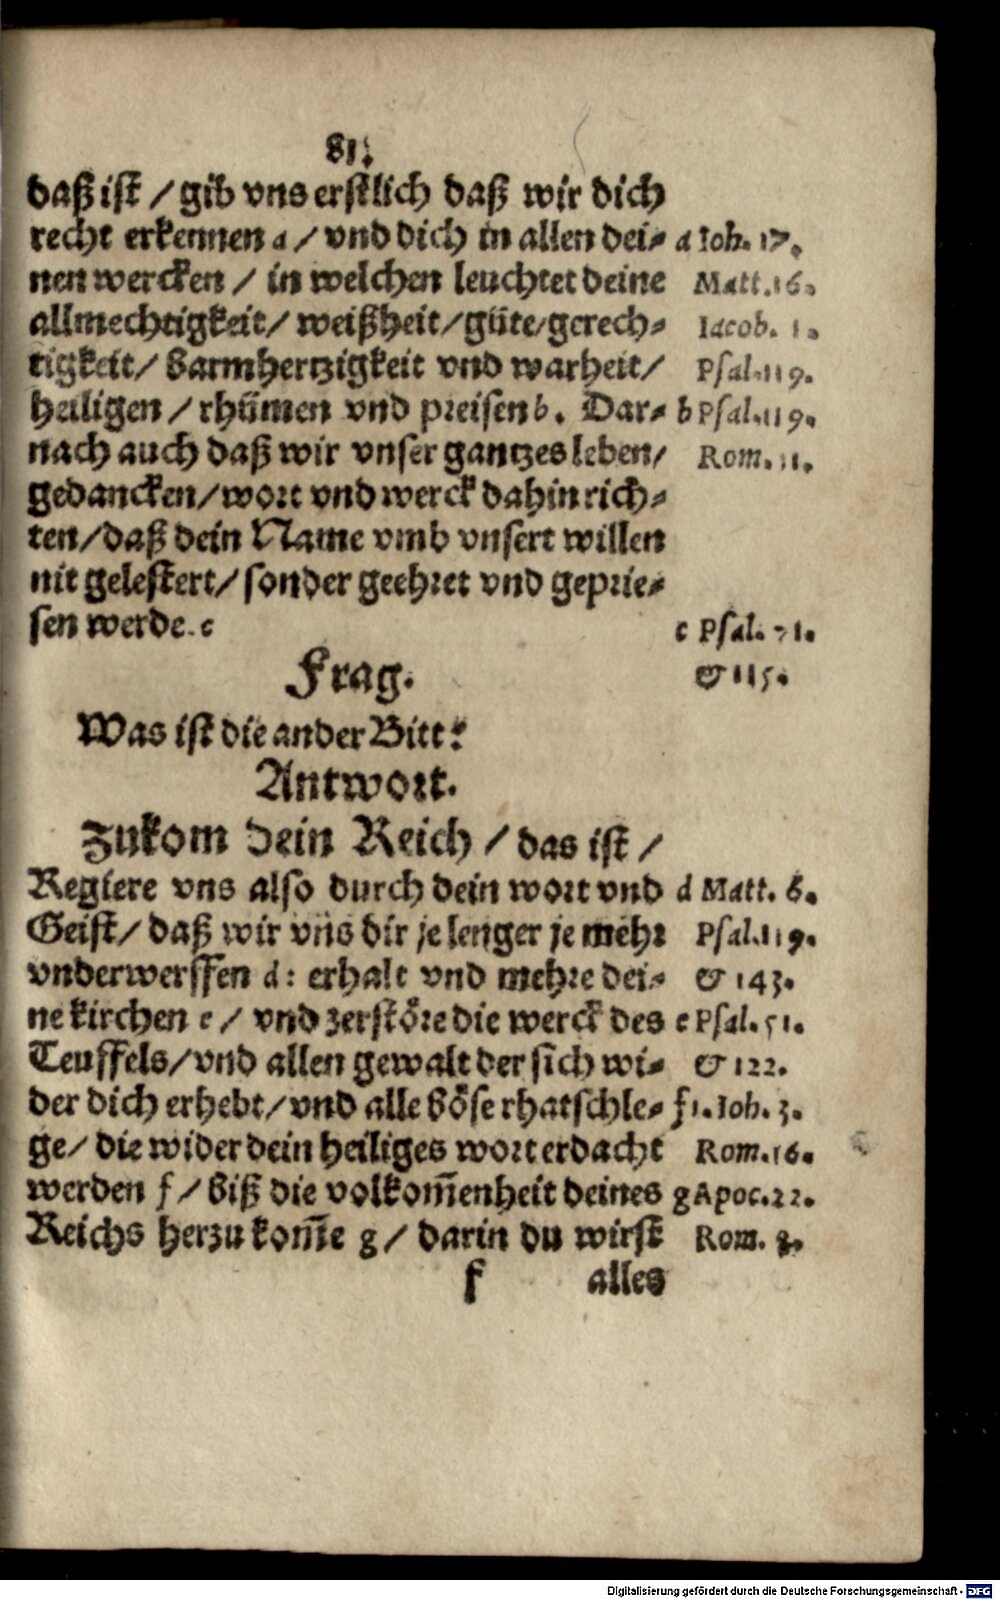 81.
daß ist / gib vns erstlich daß wir dich
recht erkennen a / vnd dich in allen dei- a Ioh. 17.
nen wercken / in welchen leuchtet deine Matt.16.
allmechtigkeit / weißheit / güte / gerech- Iacob. 1.
tigkeit / barmhertzigkeit vnd warheit / Psal.119.
heiligen / rhümen vnd preisen b. Dar- b Psal.119.
nach auch daß wir vnser gantzes leben / Rom. 11.
gedancken / wort vnd werck dahin rich-
ten / daß dein Name vmb vnsert willen
nit gelestert / sonder geehret vnd geprie-
sen werde. c c Psal. 71.
Frag. & 115.
Was ist die ander Bitt?
Antwort.
Zukom dein Reich / das ist /
Regiere vns also durch dein wort vnd d Matt. 6.
Geist / daß wir vns dir je lenger je mehr Psal.119.
vnderwerffen d : erhalt vnd mehre dei- & 143.
ne kirchen e / vnd zerstöre die werck des e Psal. 51.
Teuffels / vnd allen gewalt der sich wi- & 122.
der dich erhebt / vnd alle böse rhatschle- f 1. Ioh. 3.
ge / die wider dein heiliges wort erdacht Rom.16.
werden f / biß die volkom̃enheit deines g Apoc.22.
Reichs herzu kom̃e g / darin du wirst Rom. 8.
f alles
Digitalisierung gefördert durch die Deutsche Forschungsgemeinschaft - DFG